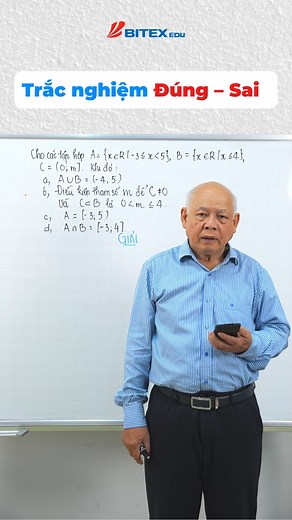 BITEX EDU
Trắc nghiệm Đúng – Sai
Cho các tập hợp A = {x∈R | -3 ≤ x < 5}, B = {x ∈ R / x ≤ 4},
C = (0; m]. Khi đó:
a, A ∪ B = (-4; 5)
b, Điều kiện tham số m để C ≠ ∅
Và C ⊂ B là 0 < m ≤ 4.
c, A = [-3; 5)
d, A ∩ B = [-3; 4]
GIẢI